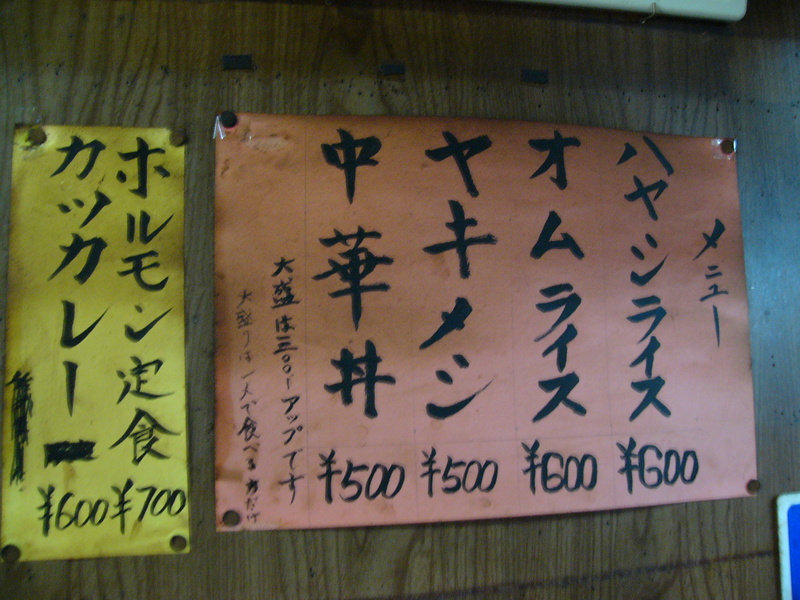 メニュー
ハヤシライス ¥600
オムライス ¥600
ヤキメシ ¥500
中華丼 ¥500
大盛は三〇〇ーアップです
大盛りは一人で食べる方だけ
ホルモン定食 ¥700
カツカレー ¥600